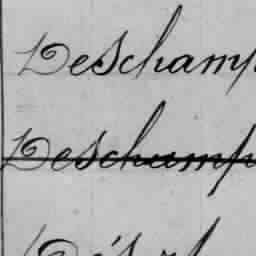 Deschamp
Deschamp